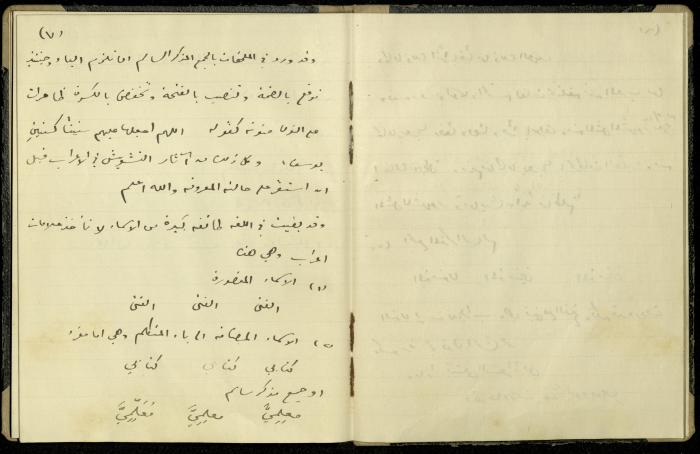 (٧)
وقد ورد في الملحقات بالجمع المذكر السالم انها تلزم الياء وحينئذ
ترفع بالضمة وتنصب بالفتحة وتخفض بالكسرة ظاهرات
مع النون منونة كقوله اللهم اجعلها عليهم سنيناً كسنينِ
يوسف وكل ذلك من آثار التشويش في الاعراب قبل
ان استقر على حالته المعروفة والله اعلم
وقد بقيت في اللغة طائفة كبيرة من الاسماء لا تأخذ علامات
اعراب وهي هذه
(١) الاسماء المقصورة
الفتى الفتى الفتى
(٢) الاسماء المضافة الى ياء المتكلم وهي اما مفرد
كتابي كتابي كتابي
او جمع مذكر سالم
معلِميَّ معلِميَّ مُعَلِّمِيَّ